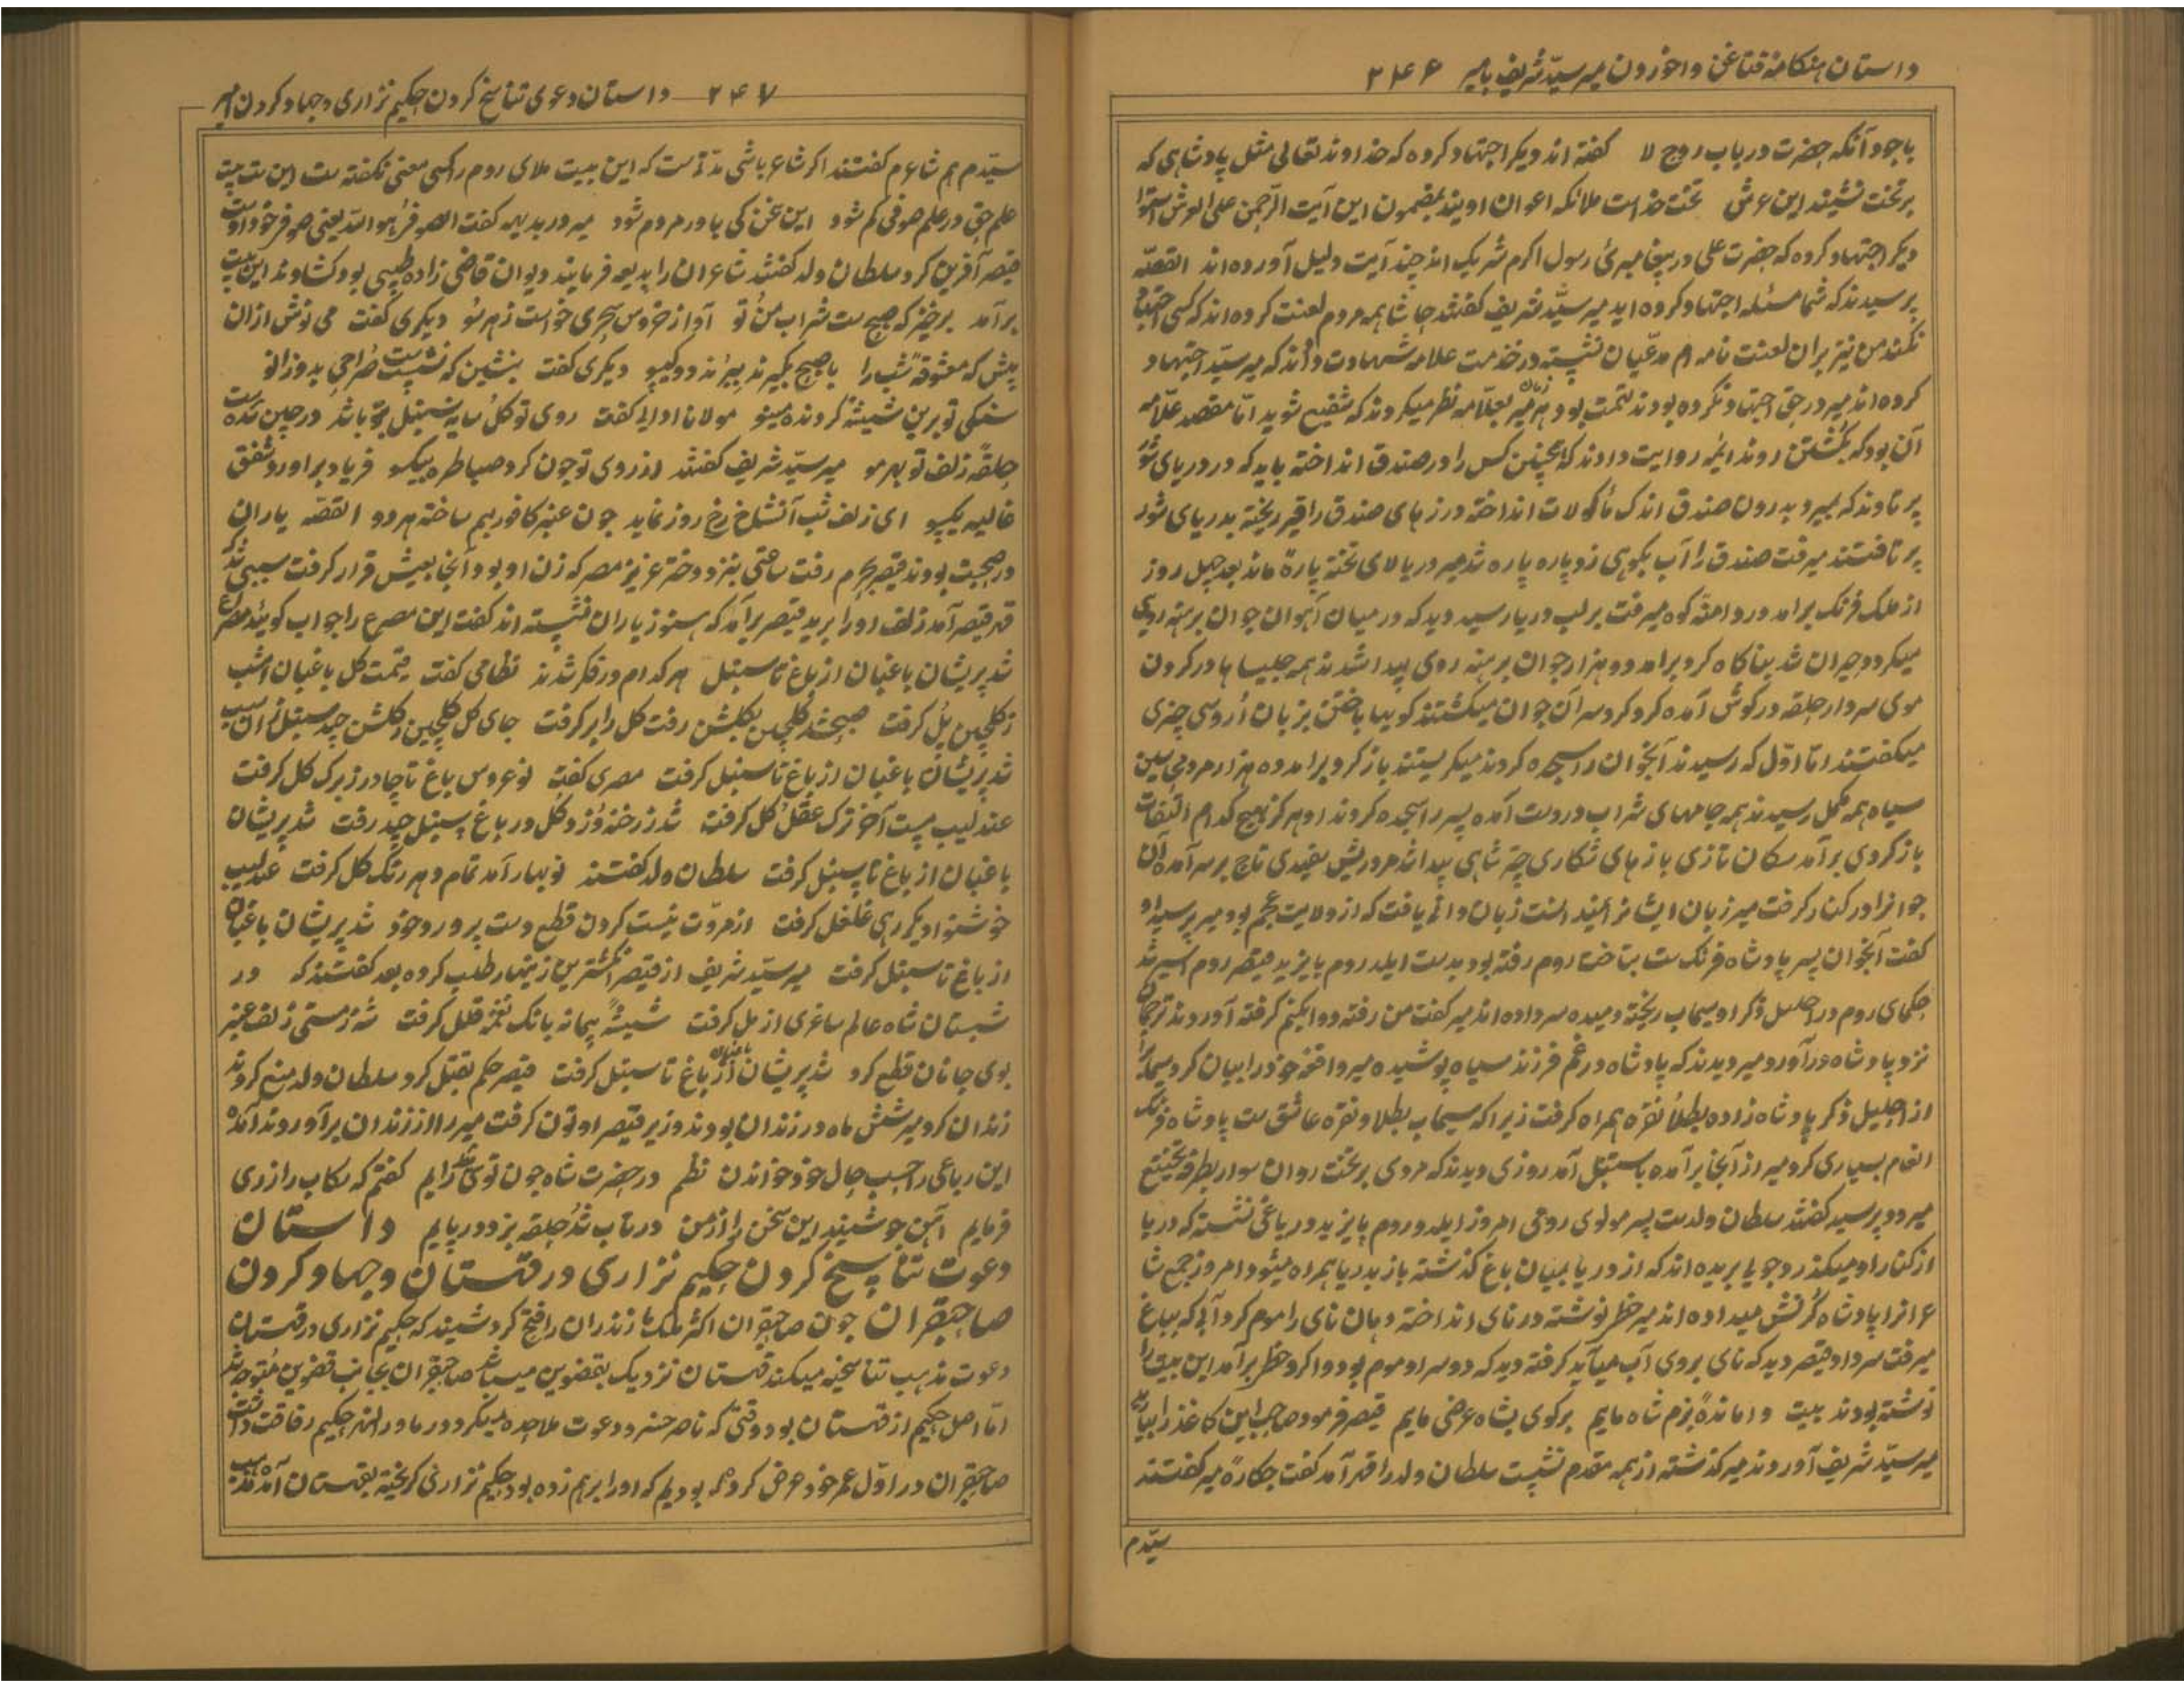 داستان هنکامهٔ قتاغن واخوردن میر سیّد شریف بامیر ۲۴۶
باجود آنکه حضرت در باب روح لا کفته اند دیکر اجتهاد کرده که خداوند تعالی مثل پادشاهی که
بر تخت نشیند این عرش تخت خداست ملائکه اعوان اویند بمضمون این آیت الرّحمن علی العرش استوا
دیکر اجتهاد کرده که حضرت علی در پیغامبریٔ رسول اکرم شریک اند چند آیت دلیل آورده اند القصّه
پرسیدند که شما مسئله اجتهاد کرده اید میر سیّد شریف کفتند حاشا همه مردم لعنت کرده اند که کسی اجتهاد
نکند من نیز بران لعنت نامه ام مدعیان نشسته در خدمت علامه شهادت دادند که میر سیّد اجتهاد
کرده اند میر در حق اجتهاد نکرده بودند تهمت بود هر زمان میر بعلّامه نظر میکردند که شفیع شوید امّا مقصد علّامه
آن بود که بکشتن روند ایمه روایت دادند که همچنین کس را در صندوق انداخته باید که در دریای شور
پرتاوند که بمیرد بدرون صندق اندک ماکولات انداخته درزهای صندق را قیر ریخته بدریای شور
پرتافتند میرفت صندق را آب بکوهی زد پاره پاره شد میر در بالای تخته پارهٔ ماند بعد چهل روز
از ملک فرنک برامد در دامنهٔ کوه میرفت بر لب دریا رسید دید که در میان آهوان جوان برهنه روی
میکردد حیران شد بناکاه کرد برامد دو هزار جوان برهنه روی پیدا شدند همه چلیپاها در کردن
موی سر دار حلقه در کوش آمده کرد کرد سر آن جوان میکشتند کویا باختن بزبان اُروسی چیزی
میکفتند امّا اوّل که رسیدند آنجوان را سجده کردند میکریستند باز کرد برامد ده هزار مرد می سین
سیاه همه مکمل رسیدند همه جامهای شراب در دست آمده پسر را سجده کردند او هرکز بهیچ کدام التفات
باز کردی برآمد سکان تازی بازهای شکاری چتر شاهی پیدا شد مرد ریش سفیدی تاج بر سر آمده آن
جوانرا در کنار کرفت میر زبان ایشانرا نمیدانست زبان دانی یافت که از ولایت عجم بود میر پرسید او
کفت آنجوان پسر پادشاه فرنک ست بتاخت روم رفته بود بدست ایلدروم بایزید قیصر روم اسیر شد
حکمای روم در احلیل ذکر او سیماب ریخته ومیده سر داده اند میر کفت من رفته دوا کنم کرفته آوردند ترجمان
نزد پادشاه درآورد میر دیدند که پادشاه در غم فرزند سیاه پوشیده میر واقعهٔ خود را بیان کرد سیماب را
از احلیل ذکر پادشاه زاده بطلا نقره همراه کرفت زیراکه سیماب بطلا و نقره عاشق ست پادشاه فرنک
انعام بسیاری کرد میر از آنجا برآمده باستنبل آمد روزی دیدند که مردی بر تخت روان سوار بطرفی
میرود پرسید کفتند سلطان ولدست پسر مولوی رومی امروز ایلدروم بایزید در باغی نشسته که دریا
از کنار او میکذرد جویی بریده اند که از دریا بمیان باغ کذشته باز بدریا همراه میشود امروز جمع شا
عرانرا پادشاه کرنش میداده اند میر خطر نوشته در نای انداخته دهان نای را موم کرد آبی که بباغ
میرفت سر داد قیصر دید که نای بروی آب میآید کرفته دید که دو سر او موم بود وا کرد خط برآمد این بیت را
نوشته بودند بیت واماندهٔ بزم شاه مایم برکوی بشاه عرضی مایم قیصر فرمود صاحب این کاغذ را بیابید
میر سیّد شریف آوردند میر کذشته از همه مقدم نشست سلطان ولد را قهر آمد کفت چکارهٔ میر کفتند
سیّدم
۲۴۷ داستان دعوی تناسخ کردن حکیم نزاری وجهاد کردن امیر
سیّدم هم شاعرم کفتند اکر شاعر باشی مدّتست که این بیت ملای روم را کسی معنی نکفته ست این ست بیت
علم حق در علم صوفی کم شود این سخن کی باور مردم شود میر در بدیهه کفت الصوفی هو الله یعنی صوفی خود اوست
قیصر آفرین کرد سلطان ولد کفتند شاعران را بدیعه فرمایند دیوان قاضی زاده طبیبی بود کشادند این بیت
برآمد برخیز که صبح ست شراب من و تو آواز خروس سحری خواست زهر سو دیکری کفت می نوش ازان
پیش که معشوقهٔ شب را با صبح بکیرند ببرند دو کیسو دیکری کفت بنشین که نشست صراحی بدوزانو
سنکی تو برین شیشهٔ کردنده مینو مولانا ادایی کفت روی تو کل سایه سنبل بتو باشد در چین شده ست
حلقهٔ زلف تو بهر مو میر سیّد شریف کفتند از روی تو چون کرد صبا طره بیکسو فریاد براورد شفق
غالیه یکسو ای زلف شب آتشل رخ روز نماید چون عنبر کافور بهم ساخته هر دو القصّه یاران
در صحبت بودند قیصر بحرم رفت ساعتی بنزد دختر عزیز مصر که زن او بود آنجا بعیش قرار کرفت سببی شد که
قهر قیصر آمد زلف او را برید قیصر برآمد که هنوز یاران نشسته اند کفت این مصرع را جواب کویند مصرع
شد پریشان باغبان از باغ تا سنبل هر کدام در فکر شدند نظامی کفت قیمت کل باغبان امشب
ز کلچین پُل کرفت صبحدم کلچین بکلشن رفت کل را بر کرفت جای کل کلچین زکلشن چید سنبل زان سبب
شد پریشان باغبان از باغ تا سنبل کرفت مصری کفت نو عروس باغ تا چادر ز برک کل کرفت
عندلیب مست آخر ترک عقل کل کرفت شد ز رخنه دزد کل در باغ سنبل چید رفت شد پریشان
باغبان از باغ تا سنبل کرفت سلطان ولد کفتند نوبهار آمد تمام دهر رنک کل کرفت عندلیب
خوشنوا دیکر رهی غلغل کرفت از مروّت نیست کردن قطع دست پرورد خود شد پریشان باغبان
از باغ تا سنبل کرفت میر سیّد شریف از قیصر انکشترین زینهار طلب کرده بعد کفتند که در
شبستان شاه عالم ساغری از مل کرفت شیشهٔ پیمانه بانک نغمهٔ قلقل کرفت شه ز مستی زلف عنبر
بوی جانان قطع کرد شد پریشان باغبان از باغ تا سنبل کرفت قیصر حکم بقتل کرد سلطان ولد منع کردند
زندان کرد میر شش ماه در زندان بودند وزیر قیصر اوتون کرفت میر را از زندان برآوردند آمده
این رباعی را حسب حال خود خواندن نظم در حضرت شاه چون قوی شد رایم کفتم که رکاب را ز زر
فرمایم آهن چو شنید این سخن را از من در تاب شد حلقه بزد در پایم داستان
دعوت تناسخ کردن حکیم نزاری در قهستان وجهاد کردن
صاحبقران چون صاحبقران اکثر ملک مازندران را فتح کرد شنید که حکیم نزاری در قهستان
دعوت مذهب تناسخیه میکند قهستان نزدیک بقضوین میباشد صاحبقران بجانب قضوین متوجه شد
امّا اصل حکیم از قهستان بود وقتی که ناصر خسرو دعوت ملاحده میکرد در ماورالنهر حکیم رفاقت داشت
صاحبقران در اوّل عمر خود عرض کرده بودیم که او را برهم زده بود حکیم نزاری کریخته بقهستان آمده مذهب